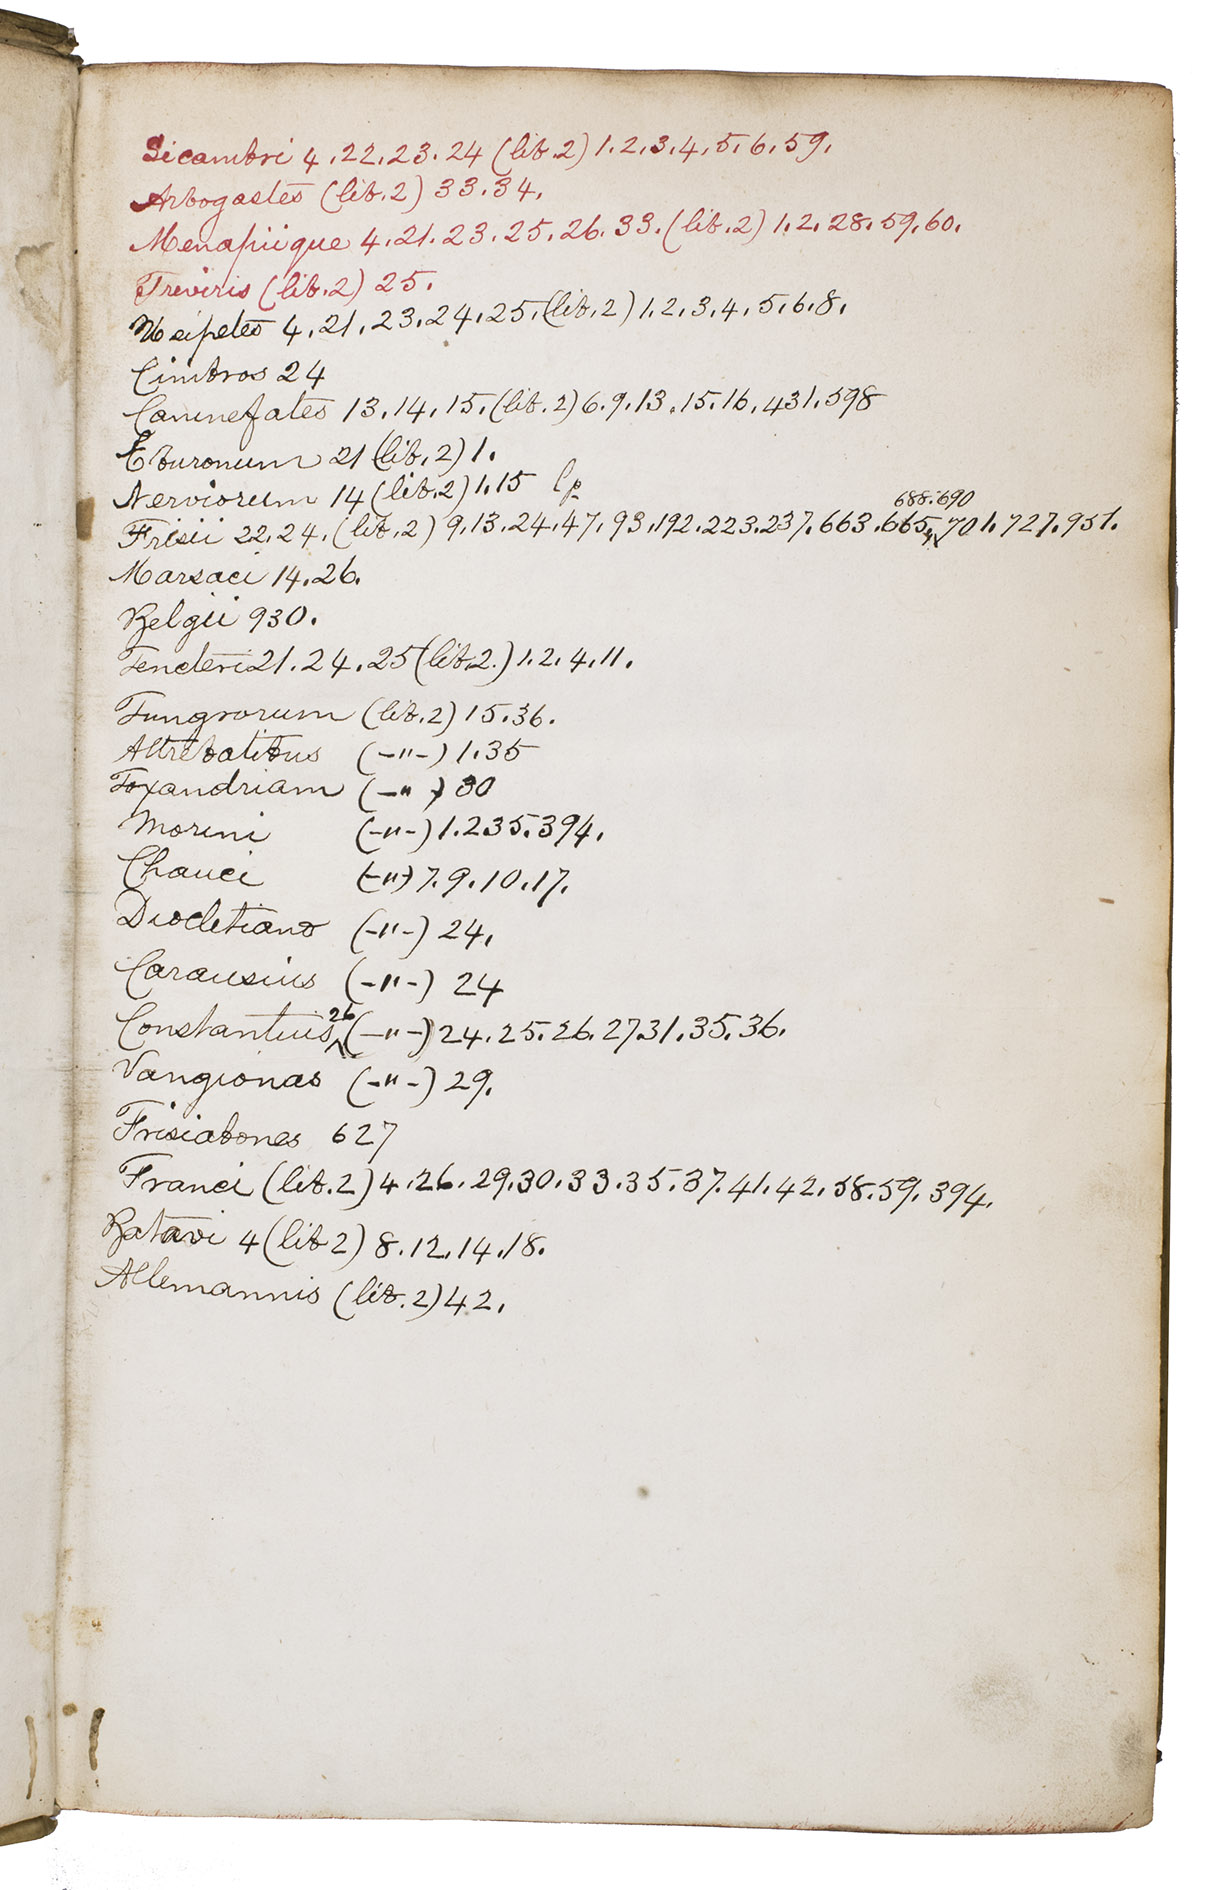 Sicambri 4.22.23.24 (lib.2) 1.2.3.4.5.6.59.
Arbogastes (lib.2) 33.34.
Menapiique 4.21.23.25.26.33.(lib.2) 1.2.28.59.60.
Treviris (lib.2) 25.
Usipetes 4.21.23.24.25.(lib.2) 1.2.3.4.5.6.8.
Cimbros 24
Caninefates 13.14.15.(lib.2) 6.9.13.15.16.431.598
Eburonum 21 (lib.2) 1.
Nerviorum 14 (lib.2) 1.15
688.690
Frisii 22.24.(lib.2) 9.13.24.47.93.192.223.237.663.665.701.727.951.
Marsaci 14.26.
Belgii 930.
Tencteri 21.24.25 (lib.2.) 1.2.4.11.
Tungrorum (lib.2) 15.36.
Attrebatibus (-"-) 1.35
Toxandriam (-"-) 30
Morini (-"-) 1.235.394.
Chauci (-"-) 7.9.10.17.
Diocletiano (-"-) 24.
Carausius (-"-) 24
Constantius 26 (-"-) 24.25.26.27.31.35.36.
Vangionas (-"-) 29.
Frisiabones 627
Franci (lib.2) 4.26.29.30.33.35.37.41.42.58.59.394.
Batavi 4 (lib 2) 8.12.14.18.
Allemannis (lib.2) 42.